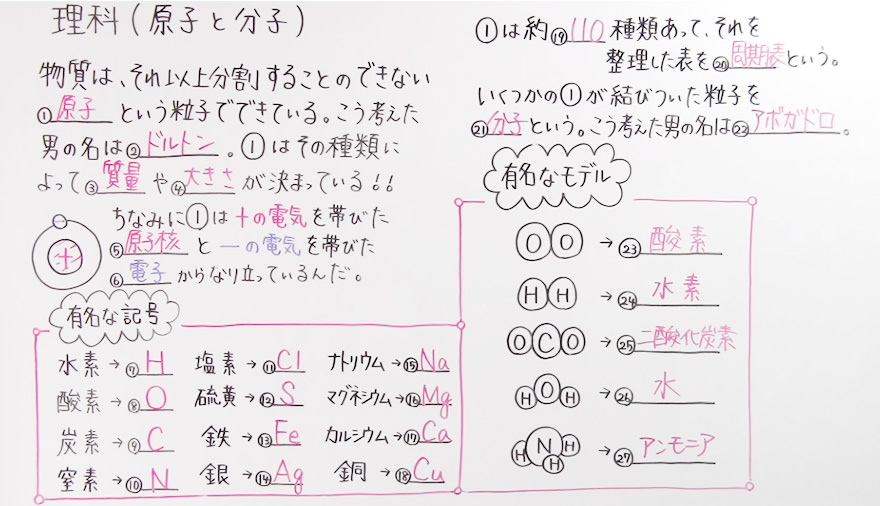 理科(原子と分子)
物質は、それ以上分割することのできない
①原子という粒子でできている。こう考えた
男の名は②ドルトン。①はその種類に
よって③質量や④大きさが決まっている!!
ちなみに①は+の電気を帯びた
⑤原子核と-の電気を帯びた
⑥電子からなり立っているんだ。
+
有名な記号
水素→⑦H 塩素→⑪Cl ナトリウム→⑮Na
酸素→⑧O 硫黄→⑫S マグネシウム→⑯Mg
炭素→⑨C 鉄→⑬Fe カルシウム→⑰Ca
窒素→⑩N 銀→⑭Ag 銅→⑱Cu
①は約⑲110種類あって、それを
整理した表を⑳周期表という。
いくつかの①が結びついた粒子を
㉑分子という。こう考えた男の名は㉒アボガドロ。
有名なモデル
OO→㉓酸素
HH→㉔水素
OCO→㉕二酸化炭素
HOH→㉖水
HNHH→㉗アンモニア